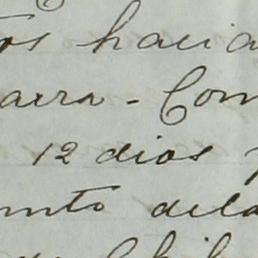 tos hacia
arra - Com
12 dias y
unto dela